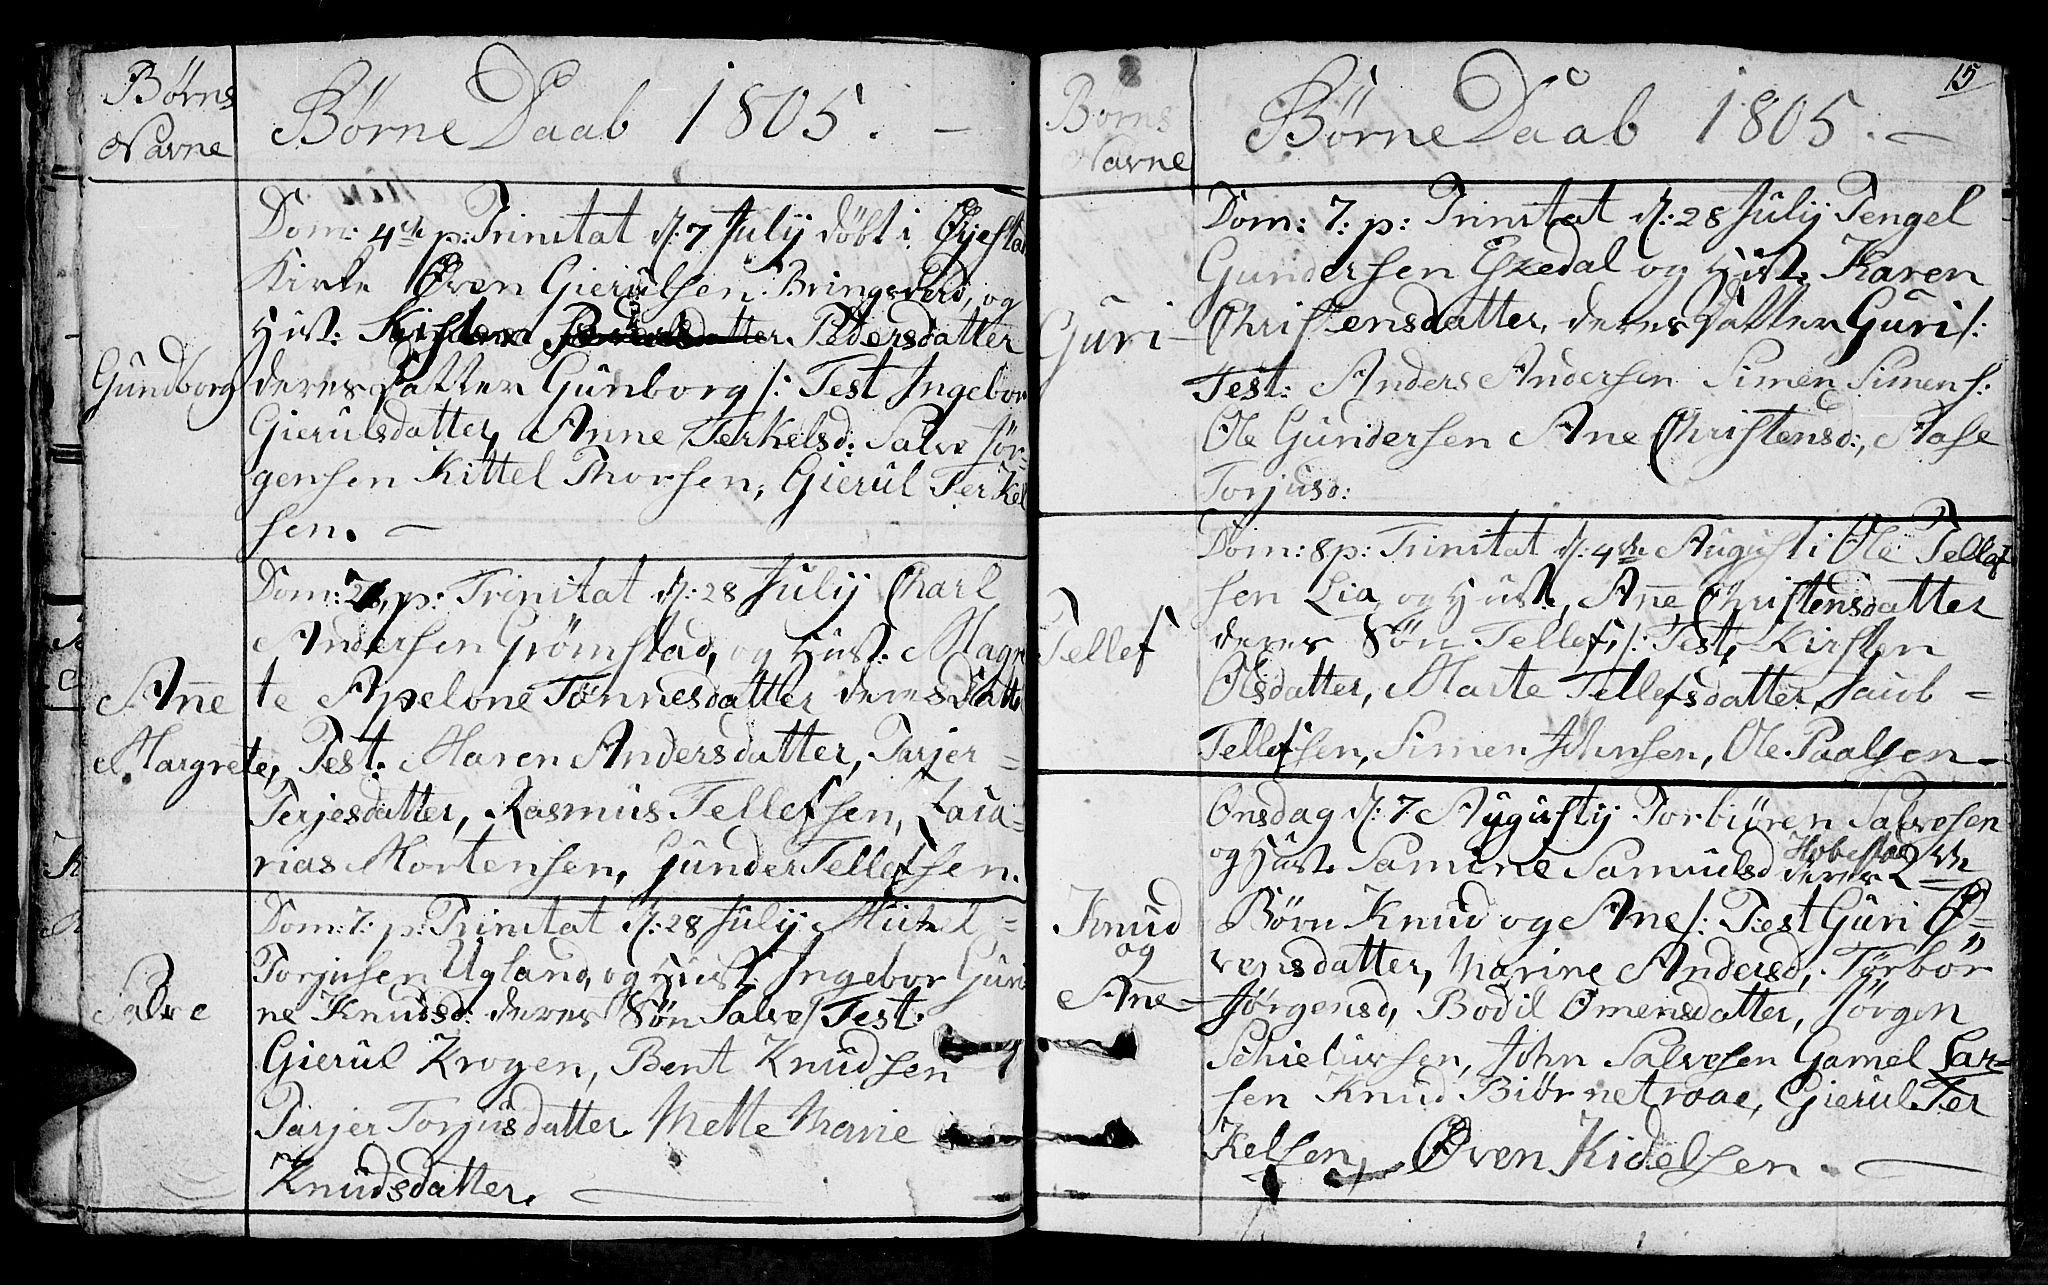 Børns
Navne
Børne Daab 1805. –
Dom: 4de p: Trinitat d: 7 Julij døbt i Øjesta
Kirke Øven Gierulsen Bringsverd, og
Hüst: Kirsten Pedersdatter
Gundborg
deres Datter Gunborg /: Test Ingebor
Gierulsdatter, Anne Terkelsd: Salve Jör=
gensen Kittel Thorsen, Gierul Terkel
sen. –
Dom: 7, p: Trinitat d: 28 Julij Charl
Andersen Grömstad, og Hüst: Magre
Ane
te Apelone Tönnesdatter deres Datte
Margrete,
Test. Maren Andersdatter, Tarjer =
Terjesdatter, Rasmus Tellefsen, Zaca=
rias Mortensen, Gunder Tellefsen.
Dom: 7. p: Trinitat d: 28 Julij Michel =
Torjusen Ugland, og Hust: Ingebor Guri
Salve
ne Knudsd: deres Søn Salve / Test.
Gierul Krogen, Bent Knudsen
Tarjer Torjusdatter Mette Marie
Knudsdatter. –
15
Børns
Navne
Børne Daab 1805. –
Dom: 7. p: Trinitat d: 28 Julij Tengel
Gundersen Eskedal og Hüst. Karen
Guri –
Christensdatter, deres Datter Guri /:
Test: Anders Andersen Simen Simens:
Ole Gundersen Ane Christensd:, Aase
Torjusd:
Dom: 8 p: Trinitat d: 4de Augusti Ole Tellef
sen Lia og Hüst, Ane Christensdatter
Tellef
deres Søn Tellef, /: Test, Kirsten
Olsdatter, Marte Tellefsdatter, Jacob =
Tellefsen, Simen Johnsen, Ole Paalsen –
Onsdag d: 7 Augustij Torbiören Salvesen
og Hüst. Samine Samuelsd deres 2de
Knud
og
Ane –
Børn Knud og Ane /: Test Guri Ø=
vensdatter, Marine Andersd, Törbör
Jørgensd, Bodil Omensdatter, Jörgen
Schielursen, John Salvesen Gamel Lar=
sen Knud Biörnetraae, Gierul Ter
Kelsen, Øven Kidelsen. –